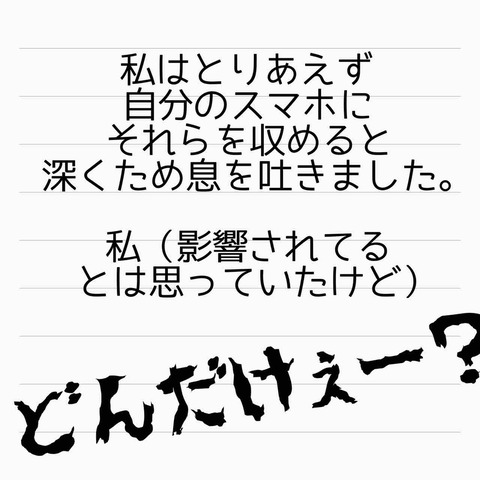 私はとりあえず
自分のスマホに
それらを収めると
深くため息を吐きました。
私（影響されてる
とは思っていたけど）
どんだけぇー?